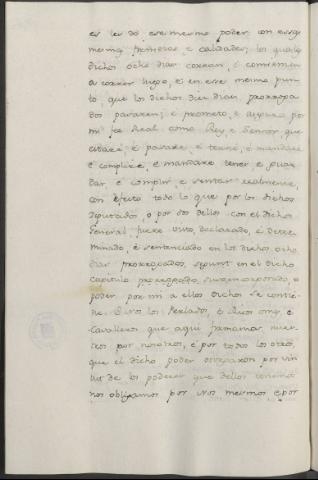 es les do ese mesmo poder con essas
mesmas firmezas e calidades; los quales
dichos ocho dias corran, e comiencen
a correr luego, e en esse mesmo pun-
to, que los dichos diez dias, prorroga
dos pasaren; e prometo, e asseguro por
mi fee Real como Rey, e Sennor que
estaré e pasaré, e terné, e mandaré
e complire, e mandaré tener e guar
dar, e complir e sentar realmente,
con efecto todo lo que por los dichos
Diputados, o por dos dellos con el dicho
General fuere visto, declarado, e deter-
minado, e sentenciado en los dichos ocho
dias prorrogados, segunt en el dicho
capitulo prorrogado, suso incorporado, o
poder por mi a ellos dichos se contie-
ne. E nos los Perlados, e Ricos omes, e
Cavalleros que aqui firmamos nues-
tros por nosotros, e por todos los otros,
que el dicho poder otorgaron por vir
tut de los poderes que dellos tenemos
nos obligamos por nos mesmos e por